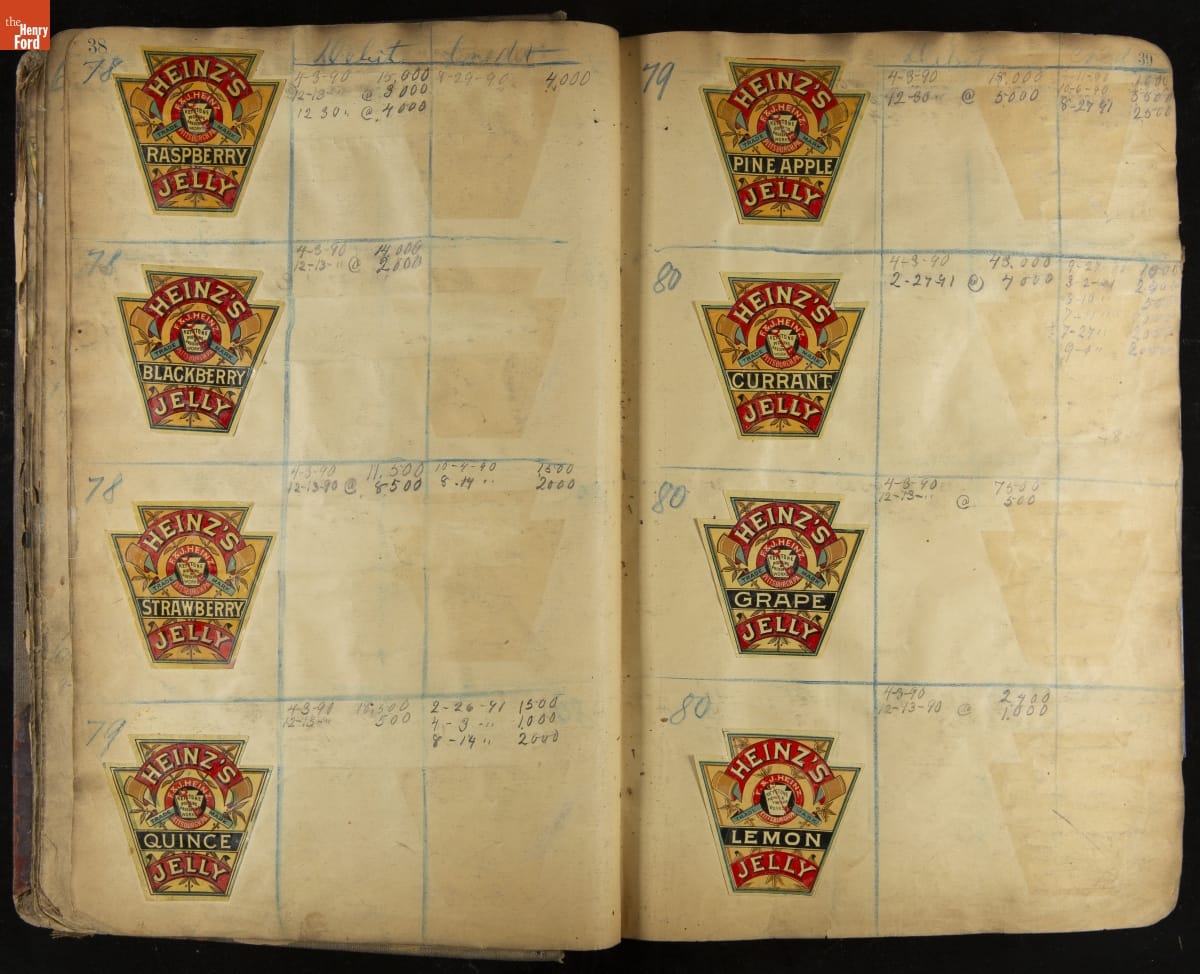 the
Henry
Ford
38
Debit Credit
78
HEINZ'S
F. & J. HEINZ.
KEYSTONE
TRADE MARK
PITTSBURGH, PA.
RASPBERRY
JELLY
4-3-90 15,000 9-29-90 4,000
12-13-" @ 3000
12 30 " @ 4000
78
HEINZ'S
F. & J. HEINZ.
KEYSTONE
TRADE MARK
PITTSBURGH, PA.
BLACKBERRY
JELLY
4-3-90 14,000
12-13-" @ 2000
78
HEINZ'S
F. & J. HEINZ.
KEYSTONE
TRADE MARK
PITTSBURGH, PA.
STRAWBERRY
JELLY
4-3-90 11,500 10-4-90 1500
12-13-90 @ 8500 8-14 " 2000
79
HEINZ'S
F. & J. HEINZ.
KEYSTONE
TRADE MARK
PITTSBURGH, PA.
QUINCE
JELLY
4-3-90 15,500 2-26-91 1500
12-13-" 500 4-3-" 1,000
8-14 " 2000
39
Debit
79
HEINZ'S
F. & J. HEINZ.
TRADE MARK
PITTSBURGH, PA.
PINE APPLE
JELLY
4-3-90 18,000
12-30 " @ 5000
8-27-91 2500
80
HEINZ'S
F. & J. HEINZ.
KEYSTONE
TRADE MARK
PITTSBURGH, PA.
CURRANT
JELLY
4-3-90 43,000
2-27-91 @ 4000
7-27 "
80
HEINZ'S
F. & J. HEINZ.
KEYSTONE
TRADE MARK
PITTSBURGH, PA.
GRAPE
JELLY
4-3-90 7500
12-13-" @ 500
80
HEINZ'S
F. & J. HEINZ.
KEYSTONE
TRADE MARK
PITTSBURGH, PA.
LEMON
JELLY
4-3-90 2,400
12-13-90 @ 1,000